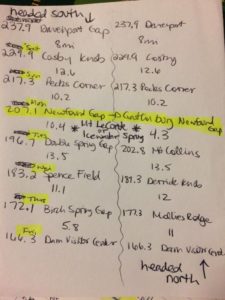 headed south ↓
237.9 Davenport Gap 237.9 Davenport
8mi 8mi
Sat
229.9 Cosby Knob 229.9 Cosby
12.6 12.6
Sun
217.3 Pecks Corner 217.3 Pecks Corner
10.2 10.2
Mon
207.1 Newfound Gap → Gatlinburg Newfound Gap
10.4 * Mt LeConte or Icewater Spring 4.3
Tues
196.7 Double Spring Gap 202.8 Mt Collins
13.5 13.5
Wed
183.2 Spence Field 189.3 Derrick Knob
11.1 12
Thurs
172.1 Birch Spring Gap 177.3 Mollies Ridge
5.8 11
Fri
166.3 Dam Visitor Center 166.3 Dam Visitor Center
headed north ↑